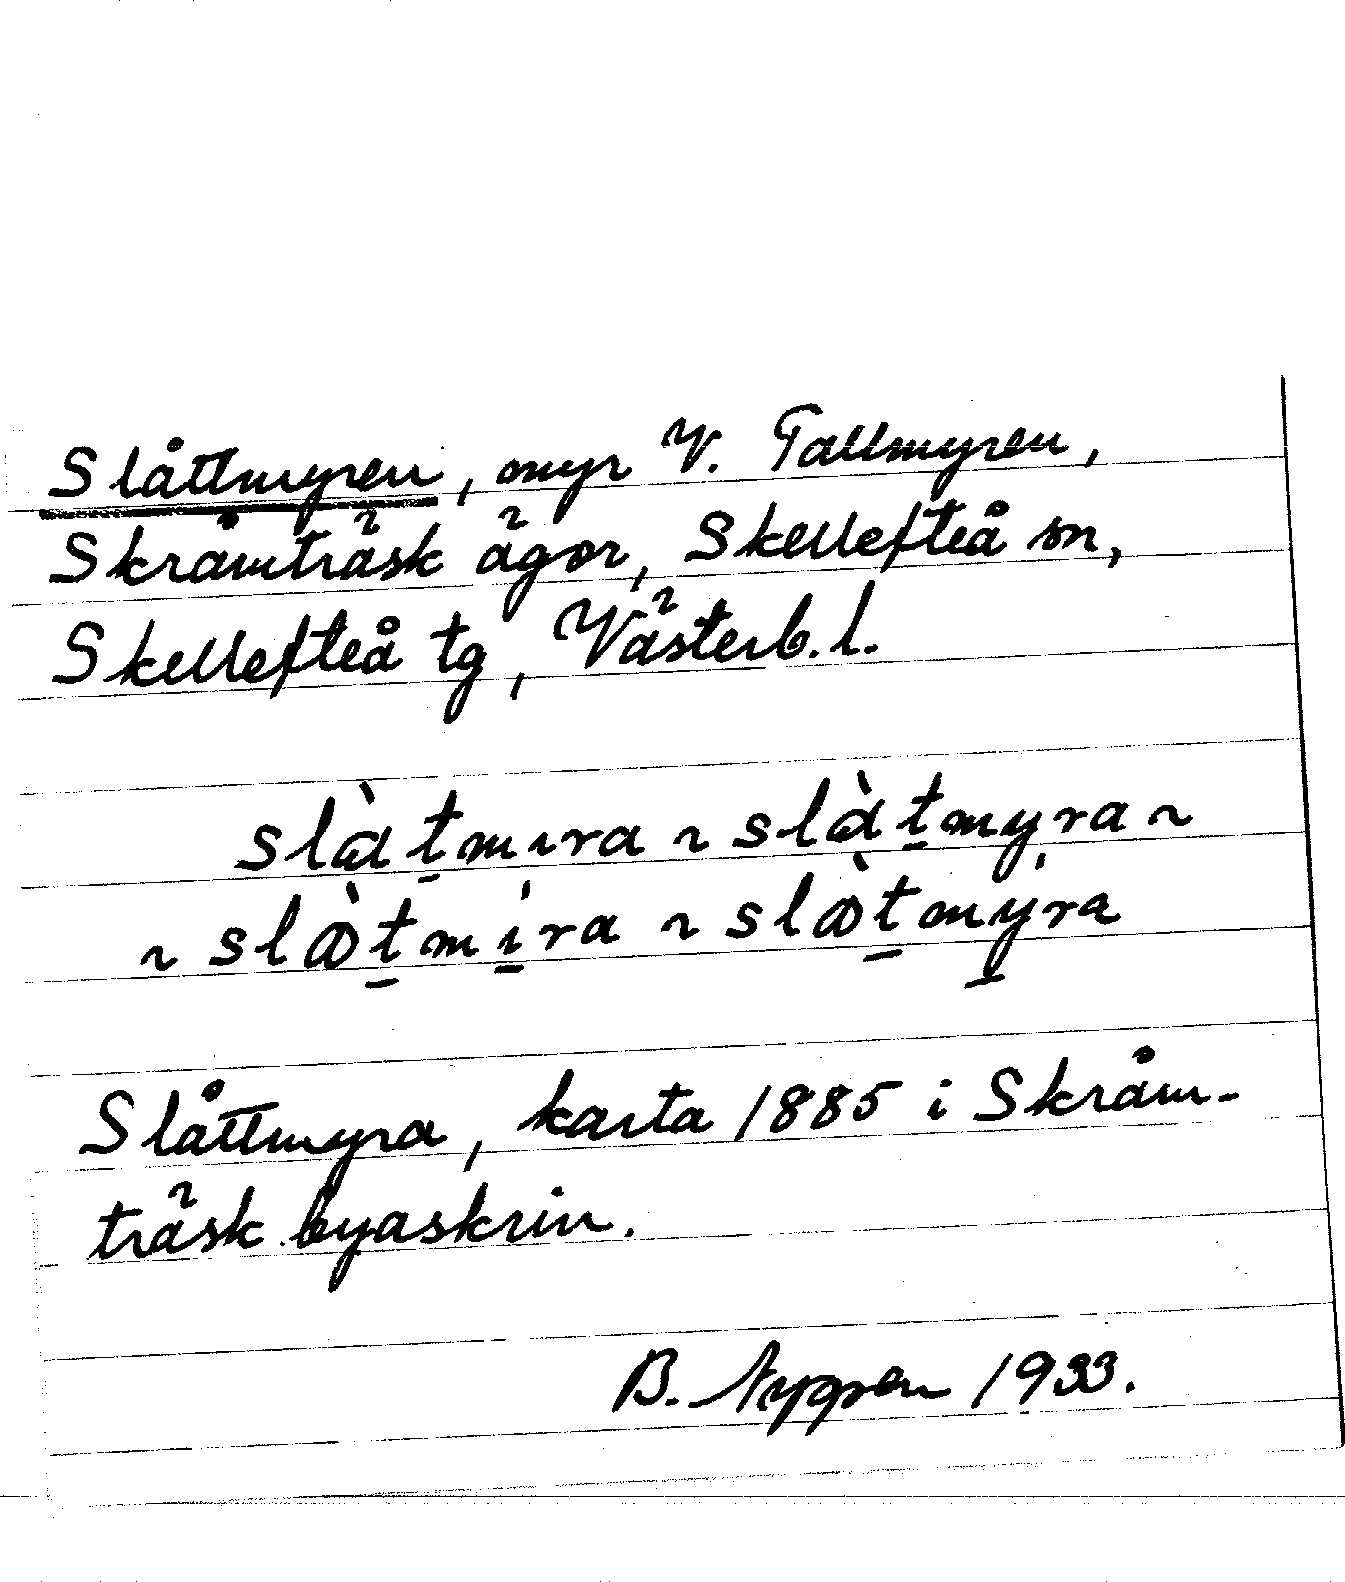 Slåttmyren, myr V. Tallmyren,
Skråmträsk ägor, Skellefteå sn,
Skellefteå tg, Västerb. l.
slɑ̀t̠mıra ~ slɑ̀t̠myra ~
~ slⱺ̀t̠mı̠́ra ~ slⱺ̀t̠mý̠ra
Slåttmyra, karta 1885 i Skråm-
träsk byaskrin.
B. Nygren 1933.